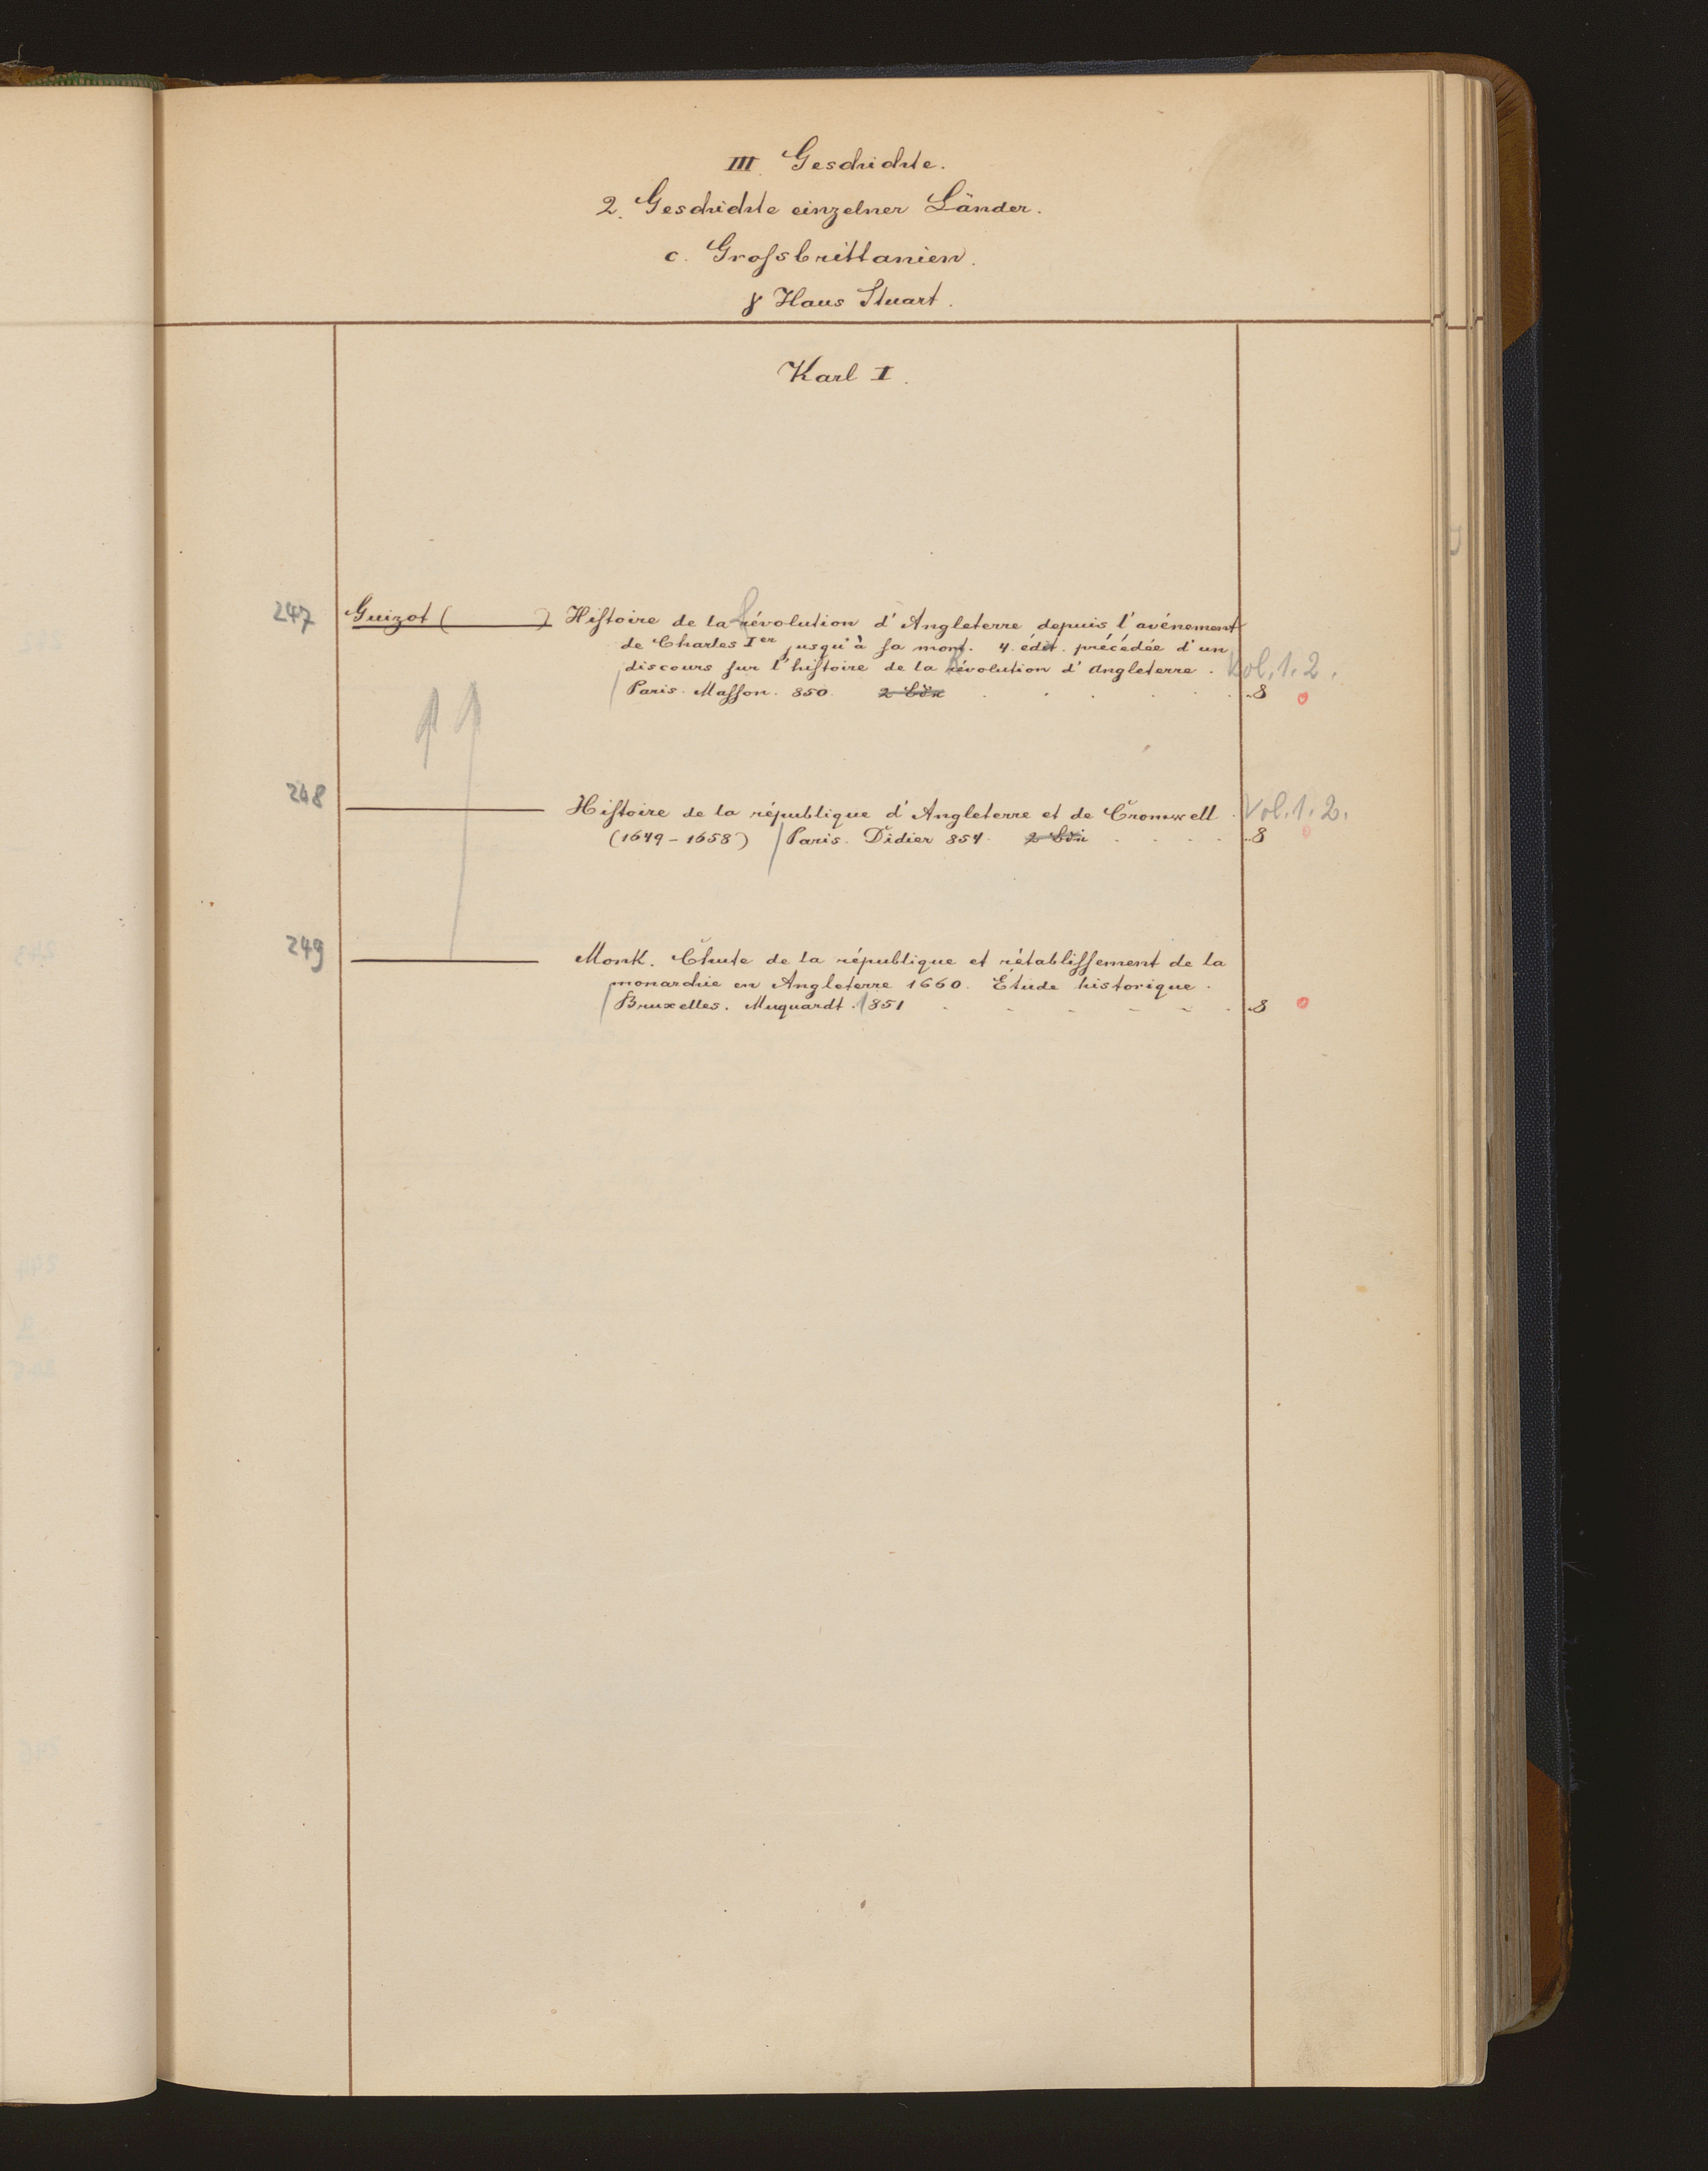 III. Geschichte.
2. Geschichte einzelner Länder.
c. Grofsbrittanien.
γ Haus Stuart.
Karl I.
247 Guizot ( ) Hiſtoire de la Révolution d'Angleterre depuis l'avénement
de Charles Ier jusqu'à ſa mort. 4. édit. précédée d'un
discours ſur l'hiſtoire de la Révolution d'Angleterre. Vol. 1. 2.
Paris. Maſſon. 850. 2 Bde 8
248 Hiſtoire de la république d'Angleterre et de Cromwell. Vol. 1. 2.
(1649-1658) Paris. Didier 854. 2 Bde 8
249 Monk. Chute de la république et rétabliſſement de la
monarchie en Angleterre 1660. Étude historique.
Bruxelles. Muquardt. 1851 8